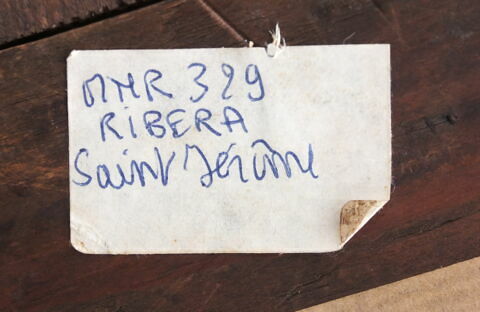 MNR 329
RIBERA
Saint Jérôme